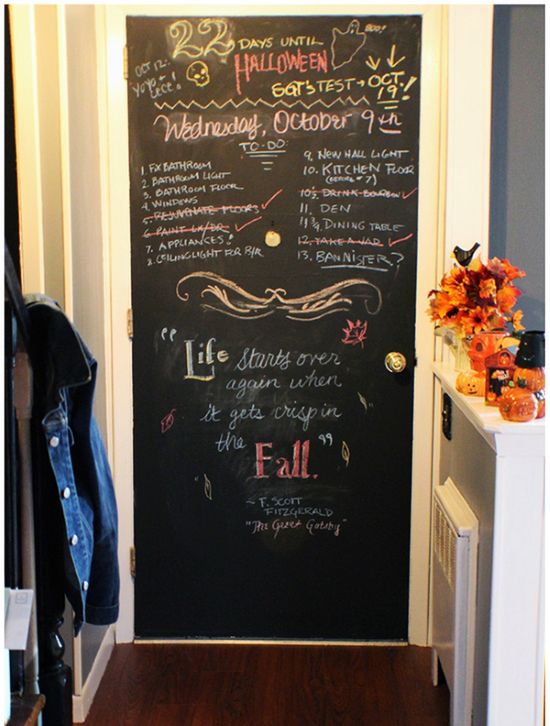 22 DAYS UNTIL
HALLOWEEN
BOO!
OCT 12:
YOYO +
CECE!
SGT'S TEST → OCT.
19!
Wednesday, October 9th
TO-DO:
1. FIX BATHROOM
2. BATHROOM LIGHT
3. BATHROOM FLOOR
4. WINDOWS
5. REJUVINATE FLOORS
6. PAINT LR/DR
7. APPLIANCES!
8. CEILING LIGHT FOR B/R
9. NEW HALL LIGHT
10. KITCHEN FLOOR
(BEFORE #7)
10½. DRINK BOURBON
11. DEN
11¾. DINING TABLE
12. TAKE A NAP
13. BANNISTER?
"Life starts over
again when
it gets crisp in
the Fall."
~ F. SCOTT
FITZGERALD
"The Great Gatsby"